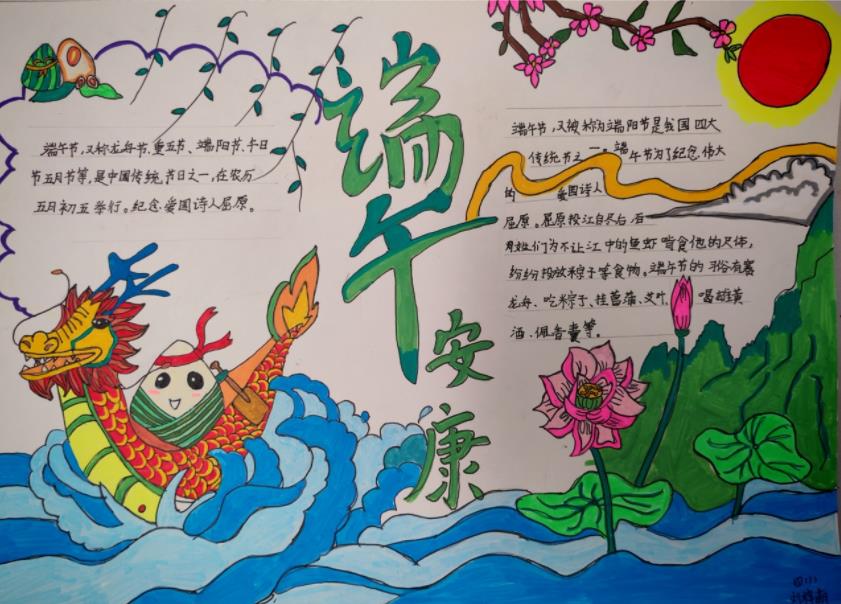 端午安康
端午节,又称龙舟节、重五节、端阳节、午日
节五月节等,是中国传统节日之一,在农历
五月初五举行。纪念爱国诗人屈原。
端午节,又被称为端阳节是我国四大
传统节之一。端午节为了纪念伟大
的 爱国诗人
屈原。屈原投江自尽后 百
姓们为不让江中的鱼虾啃食他的尸体,
纷纷投放粽子等食物。端午节的习俗有赛
龙舟、吃粽子、挂菖蒲、艾叶、喝雄黄
酒、佩香囊等。